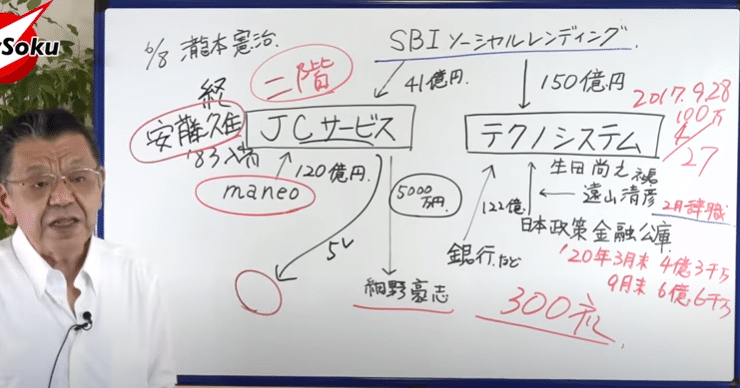 Soku
6/8 瀧本憲治
SBIソーシャルレンディング
二階
経
安藤久佳
'83入省
41億円
150億円
2017.9.28
100万
4/27
JCサービス
テクノシステム
maneo
120億円.
5000万円
生田尚之 社長
遠山清彦
2月辞職
122億.
日本政策金融公庫
銀行など
'20年3月末 4億3千万
9月末 6億6千万
細野豪志
300社